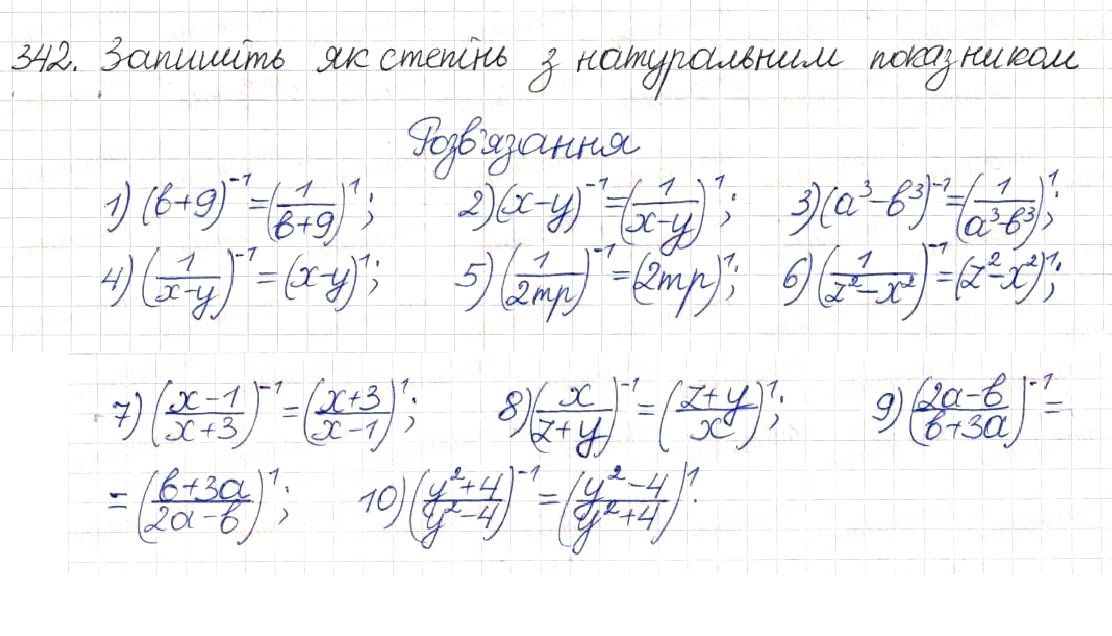 342. Запишіть як степінь з натуральним показником
Розв'язання
1) (в+9)⁻¹=(1/(в+9))¹; 2) (x−y)⁻¹=(1/(x−y))¹; 3) (a³−в³)⁻¹=(1/(a³−в³))¹;
4) (1/(x−y))⁻¹=(x−y)¹; 5) (1/(2mp))⁻¹=(2mp)¹; 6) (1/(z²−x²))⁻¹=(z²−x²)¹;
7) ((x−1)/(x+3))⁻¹=((x+3)/(x−1))¹; 8) (x/(z+y))⁻¹=((z+y)/x)¹; 9) ((2a−в)/(в+3a))⁻¹=
=((в+3a)/(2a−в))¹; 10) ((y²+4)/(y²−4))⁻¹=((y²−4)/(y²+4))¹.